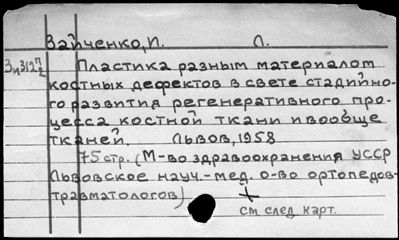 Зайченко, И. Л.
Пластика разным материалом
костных дефектов в свете стадийно-
го развития регенеративного про-
цесса костной ткани и вообще
тканей. Львов, 1958
75 стр. (М-во здравоохранения УССР
Львовское науч.-мед. о-во ортопедов-
травматологов)
см след. карт.